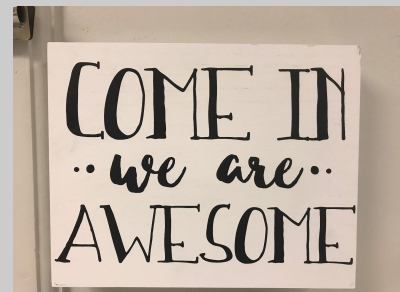 COME IN
··we are··
AWESOME